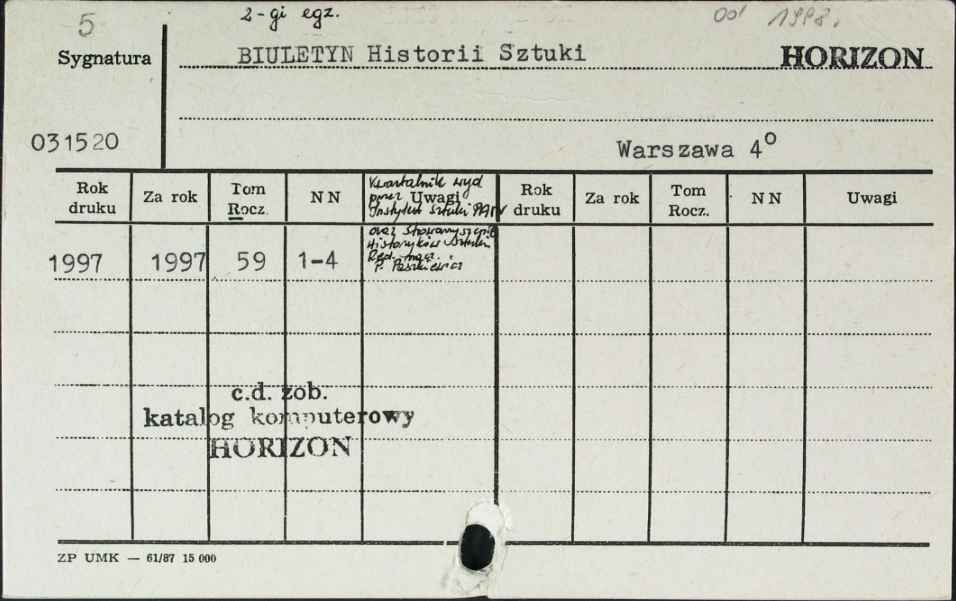 5
2-gi egz.
od 1998.
Sygnatura
BIULETYN Historii Sztuki
HORIZON
031520
Warszawa 4°
Rok druku
Za rok
Tom Rocz.
NN
Uwagi
Rok druku
Za rok
Tom Rocz.
NN
Uwagi
Kwartalnik wyd
przez
Instytut Sztuki PAN
oraz Stowarzyszenie
Historyków Sztuki
Red. nacz.
P. Paszkiewicz
1997 1997 59 1-4
c.d. zob.
katalog komputerowy
HORIZON
ZP UMK — 61/87 15 000